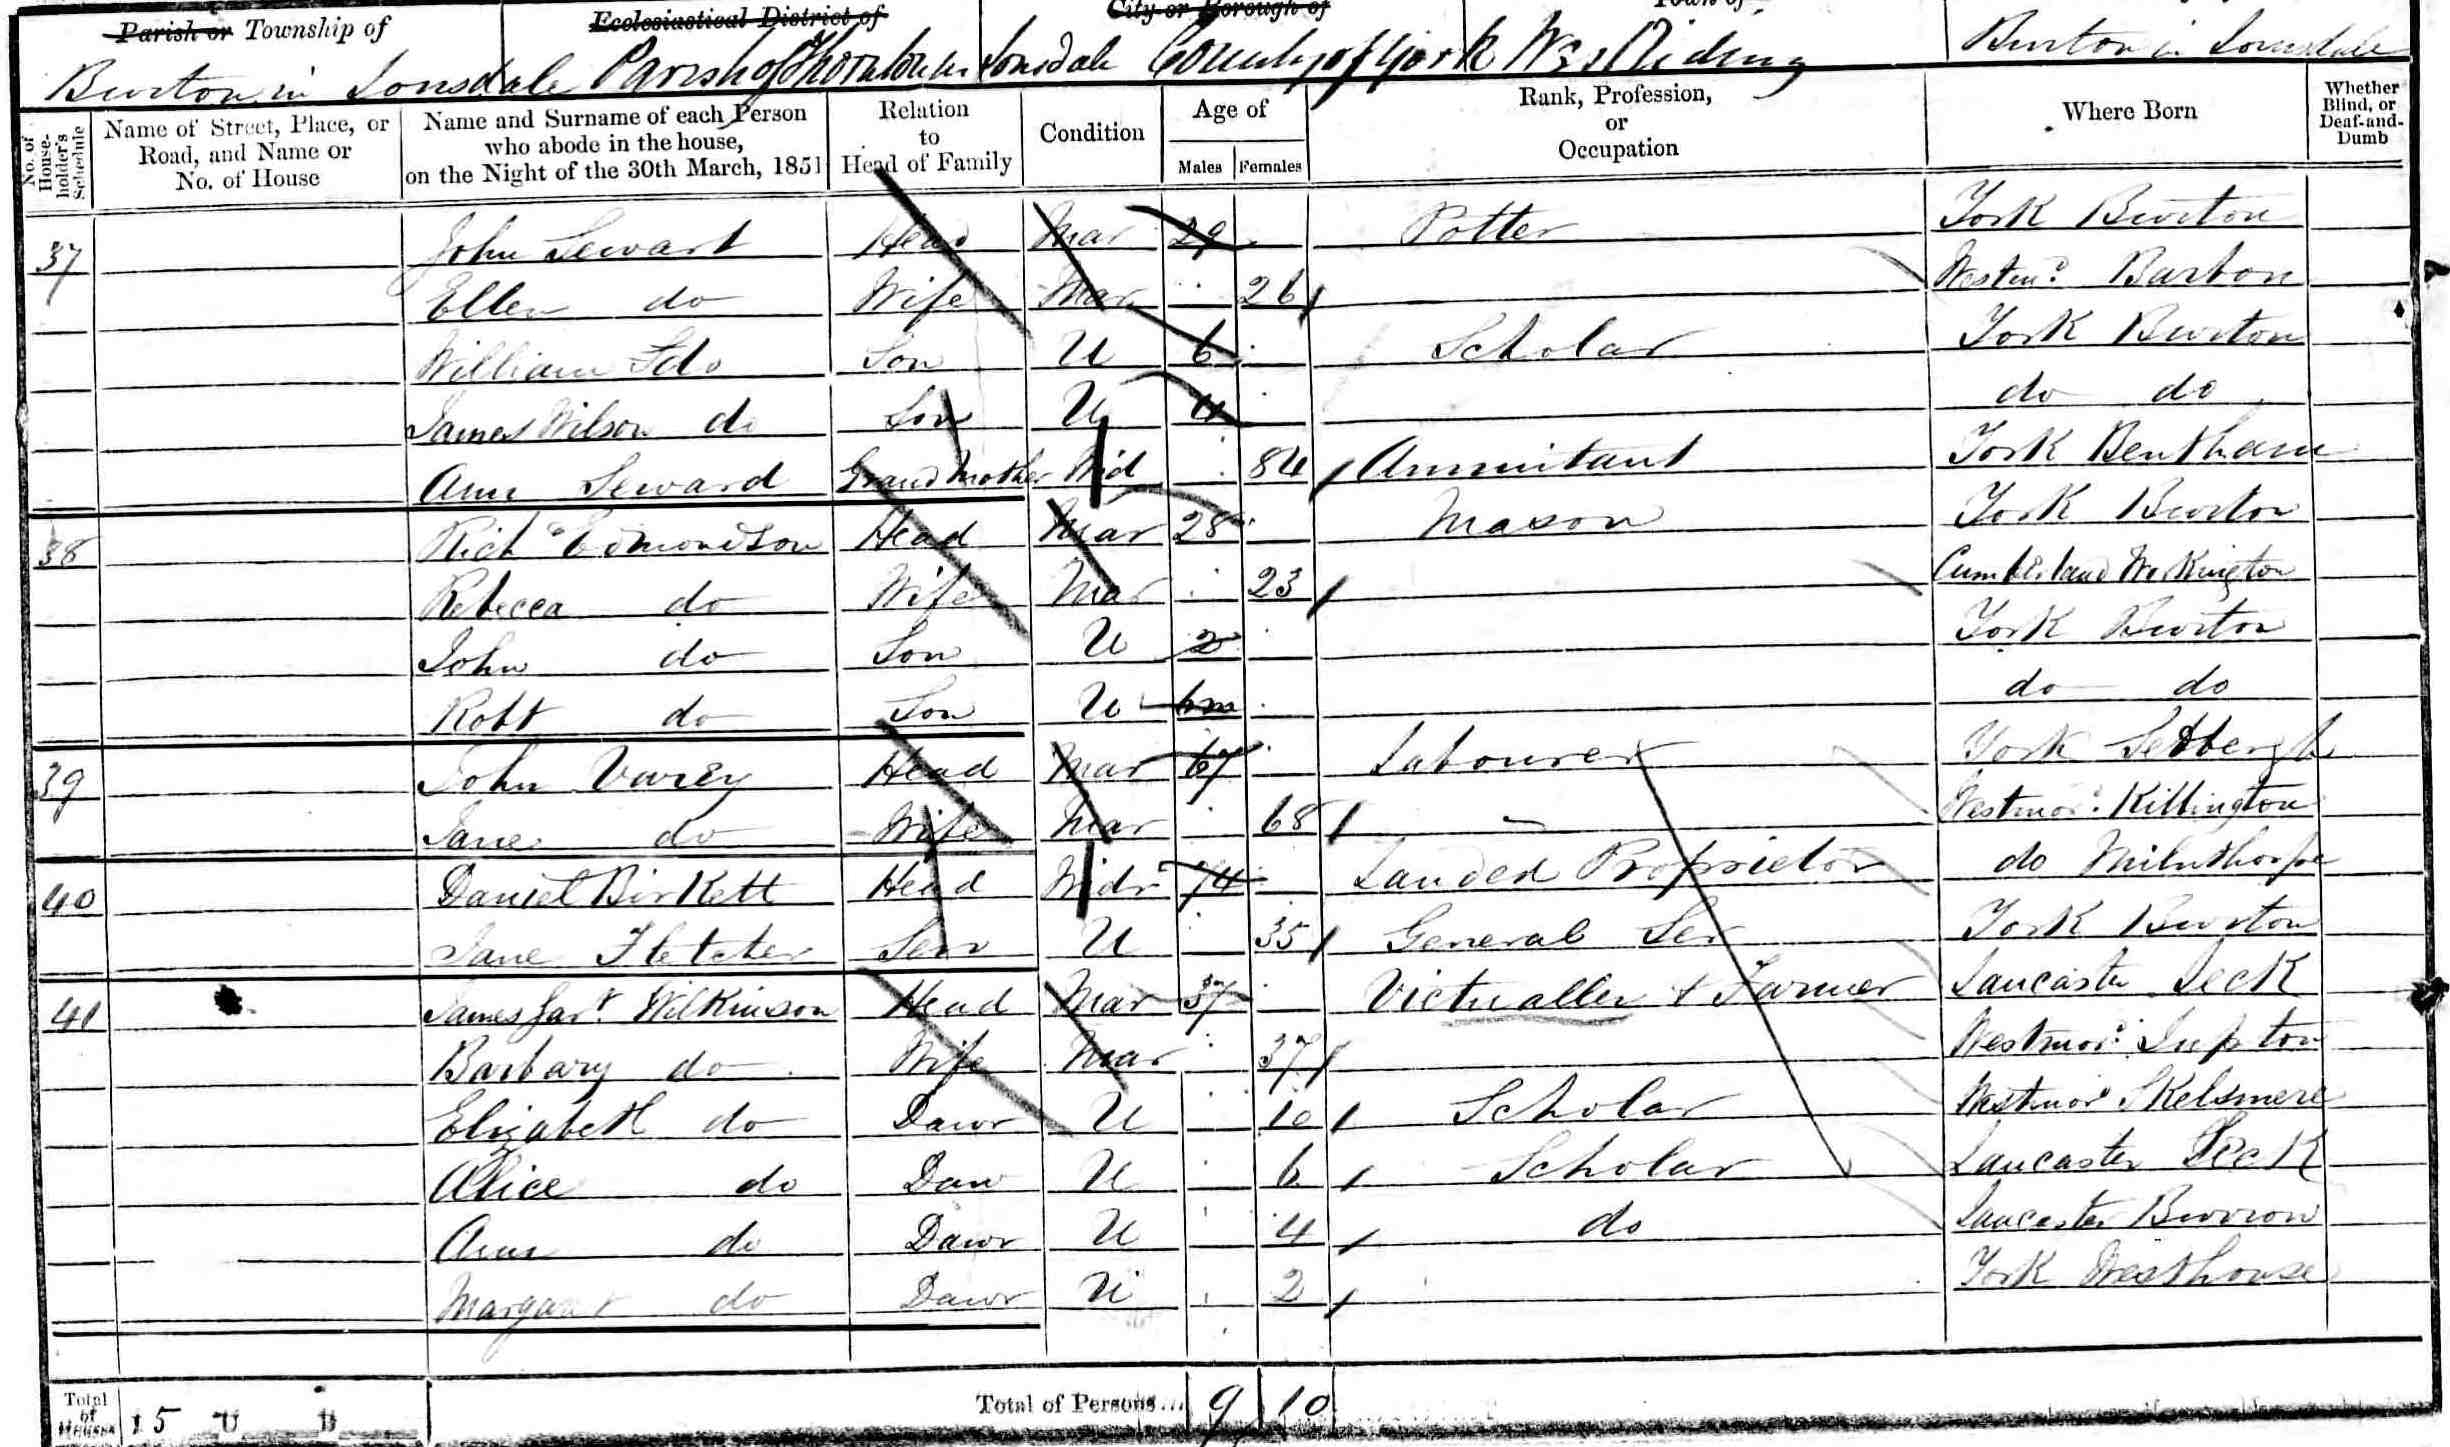 Parish or Township of Ecclesiastical District of City or Borough of Town of
Burton in Lonsdale Parish of Thornton in Lonsdale County of York West Riding Burton in Lonsdale
No. of House-holder's Schedule | Name of Street, Place, or Road, and Name or No. of House | Name and Surname of each Person who abode in the house, on the Night of the 30th March, 1851 | Relation to Head of Family | Condition | Age of Males Females | Rank, Profession, or Occupation | Where Born | Whether Blind, or Deaf-and-Dumb
37 John Sewart Head Mar 29 Potter York Burton
Ellen do Wife Mar 26 Westmd. Barbon
William do Son U 6 Scholar York Burton
James Wilson do Son U 4 do do
Ann Seward Grand Mother Wid 84 Annuitant York Bentham
38 Richd Edmondson Head Mar 28 Mason York Burton
Rebecca do Wife Mar 23 Cumberland Workington
John do Son U 2 York Burton
Robt do Son U 6m do do
39 John Varey Head Mar 67 Labourer York Sedbergh
Jane do Wife Mar 68 Westmor. Killington
40 Daniel Birkett Head Widr 74 Landed Proprietor do Milnthorpe
Jane Fletcher Serv U 35 General Ser York Burton
41 James Wilkinson Head Mar 37 Victualler + Farmer Lancaster Leck
Barbary do Wife Mar 37 Westmor. Lupton
Elizabeth do Dawr U 10 Scholar Westmor Skelsmere
Alice do Daw U 6 Scholar Lancaster Leck
Ann do Dawr U 4 do Lancaster Burrow
Margaret do Dawr U 2 York Westhouse
Total of Houses 5 U B Total of Persons... 9 10